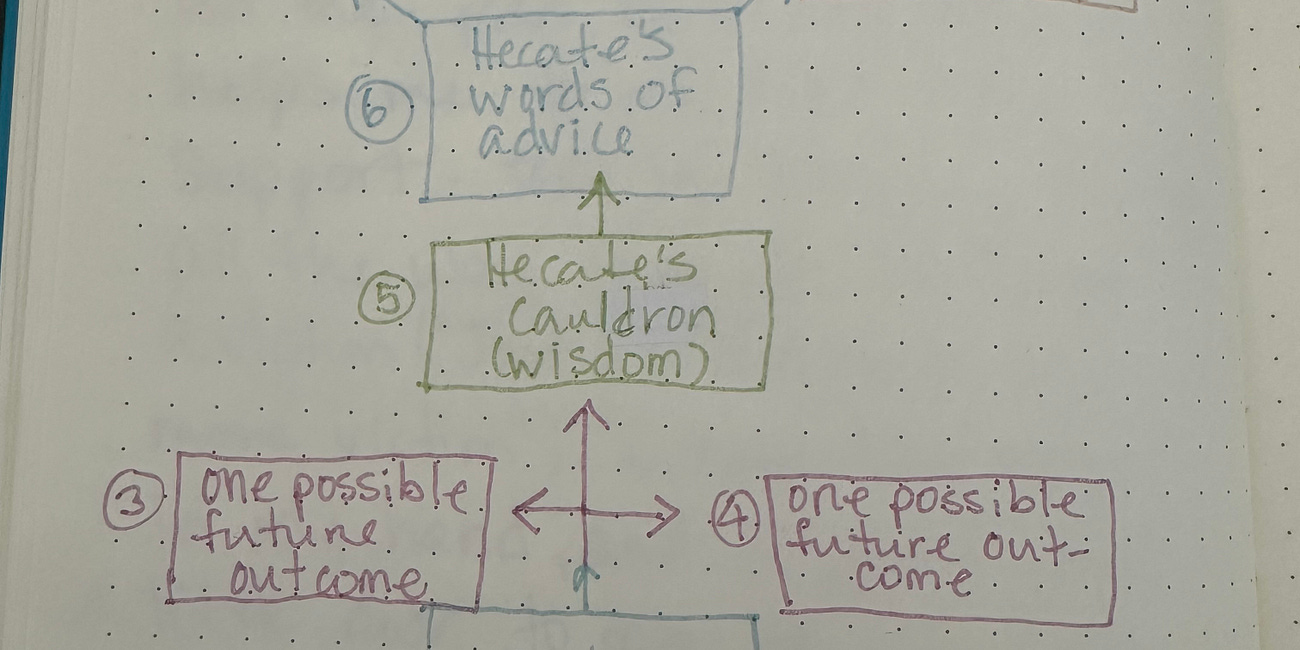 Hecate's
words of
advice
6
Hecate's
cauldron
(wisdom)
5
3
one possible
future
outcome
4
one possible
future out-
come